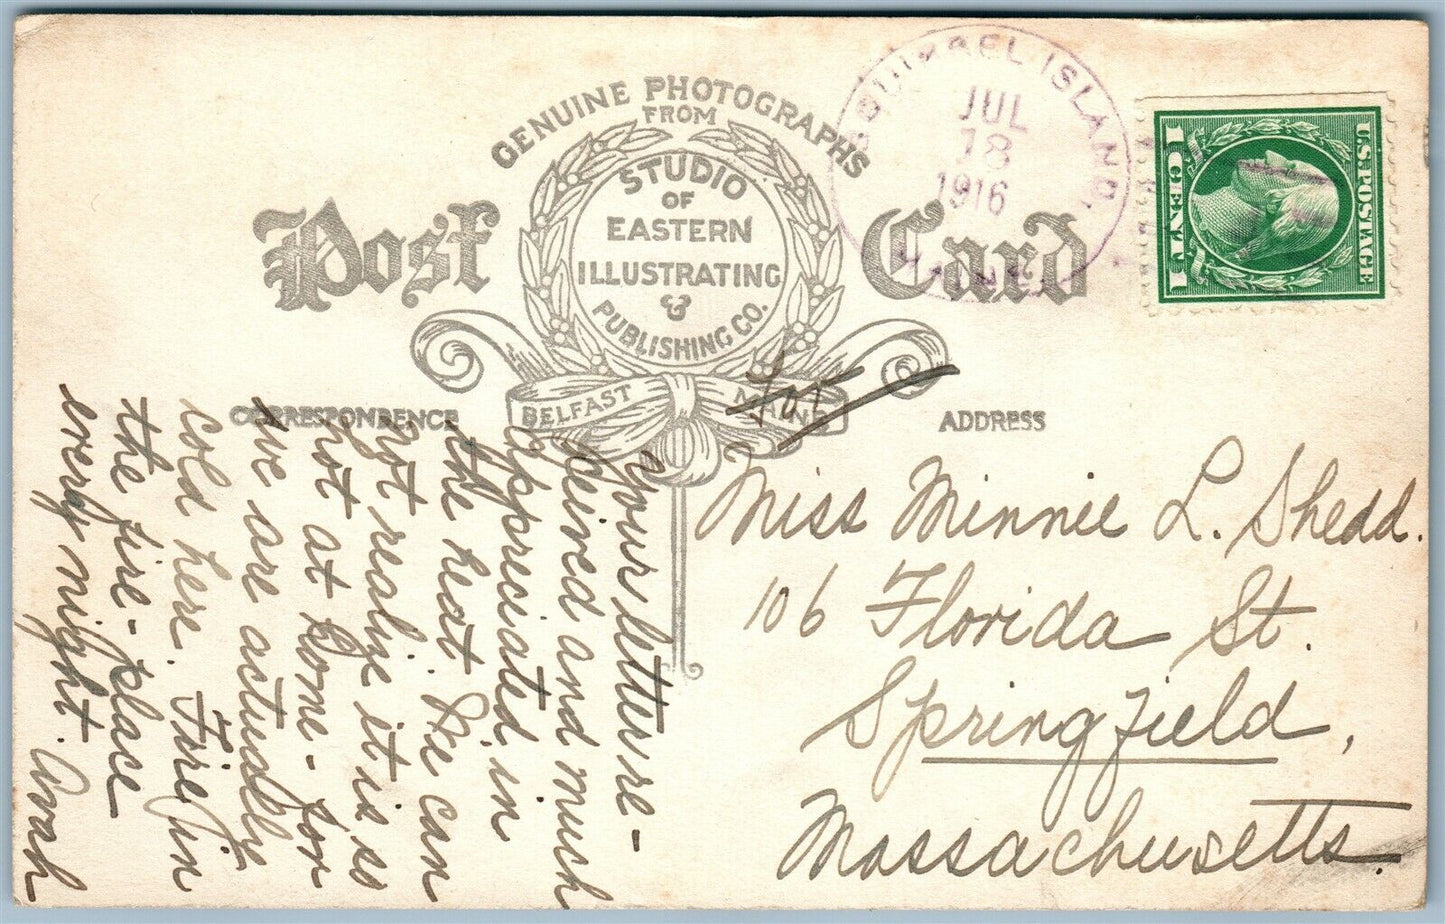 GENUINE PHOTOGRAPHS
FROM
STUDIO
OF
EASTERN
ILLUSTRATING
&
PUBLISHING CO.
BELFAST MAINE
Post Card
SQUIRREL ISLAND,
JUL
18
1916
MAINE
U.S. POSTAGE
1 CENT 1
CORRESPONDENCE
ADDRESS
Your letter re-
ceived and much
appreciated in
the heat. We can
not realize it is so
hot at home - for
we are actually
cold here. Fire in
the fire-place
every night.
Miss Minnie L. Shedd.
106 Florida St.
Springfield,
Massachusetts.